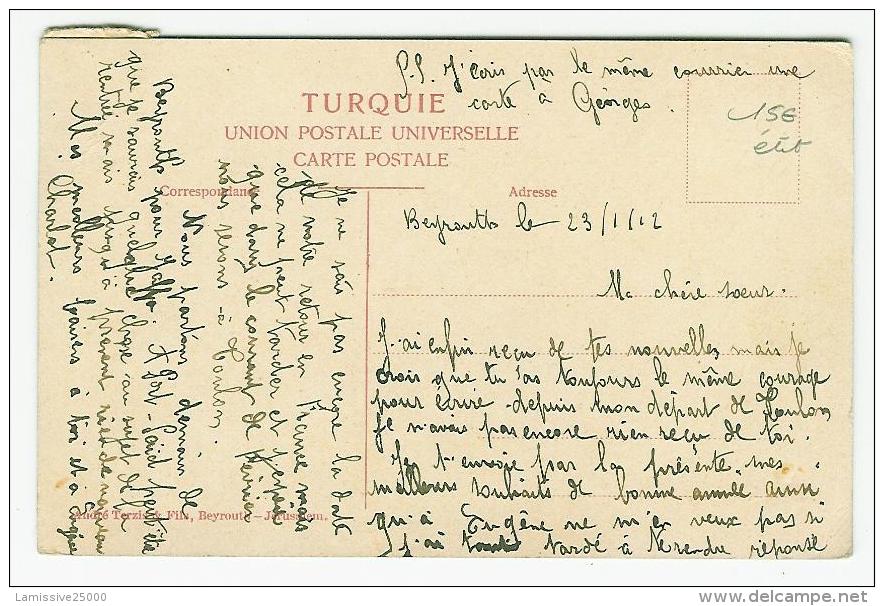 P.S. J'écris par le même courrier une
carte à Georges.
15€
état
TURQUIE
UNION POSTALE UNIVERSELLE
CARTE POSTALE
Correspondance
Adresse
Beyrouth le 23/1/12
Ma chère soeur.
J'ai enfin reçu de tes nouvelles, mais je
crois que tu as toujours le même courage
pour écrire depuis mon départ de Toulon
je n'avais pas encore rien reçu de toi.
Je t'envoie par la présente mes
meilleurs souhaits de bonne année ainsi
qu'à Eugène ne m'en veux pas si
j'ai tardé à te rendre réponse
Je ne sais pas encore la date
de notre retour en France mais
cela ne peut tarder et
que dans le courant de Février
nous serons à Toulon.
Nous partons demain de
Beyrouth pour Jaffa. A Port-Saïd peut être
que je saurais quelque chose au sujet de la
rentrée mais jusqu'à présent rien de nouveau
Mes meilleurs baisers à toi et à Eugène
Charlot.
André Terzis & Fils, Beyrouth-Jérusalem.
Lamissive25000
delcampe.net